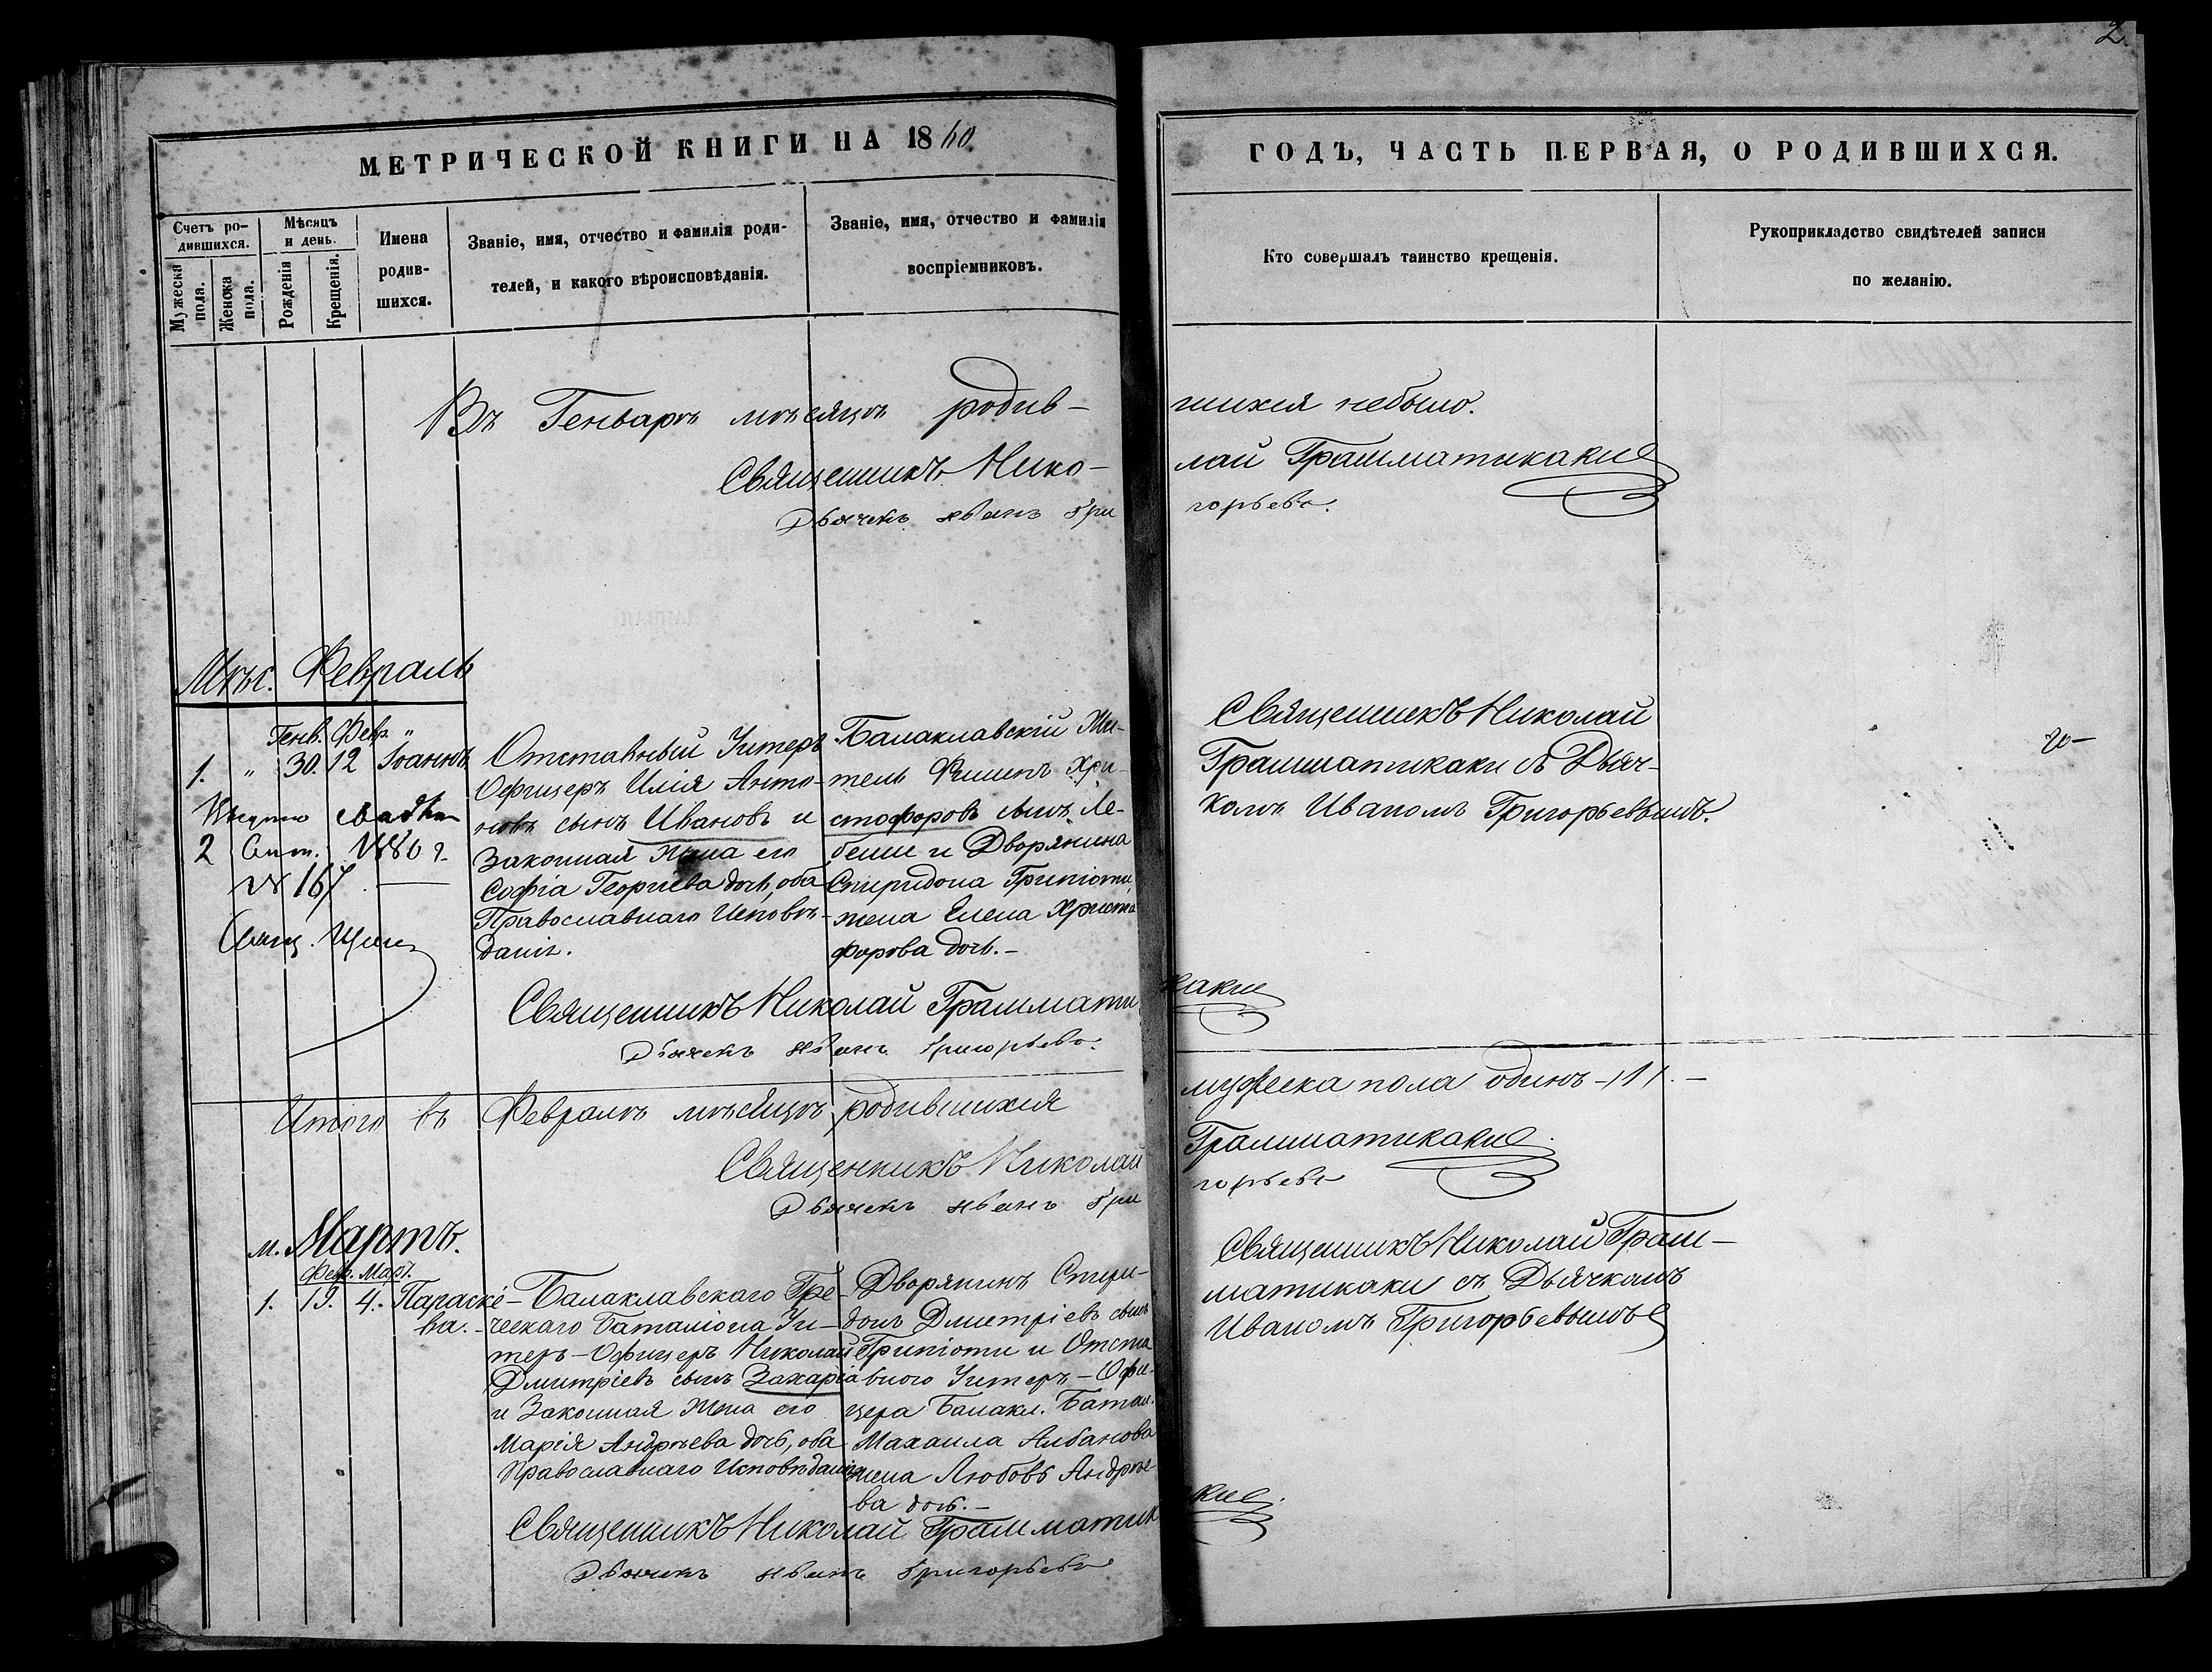 2.
МЕТРИЧЕСКОЙ КНИГИ НА 1860
ГОДЪ, ЧАСТЬ ПЕРВАЯ, О РОДИВШИХСЯ.
Счетъ ро-
дившихся.
Мужеска пола.
Женска пола.
Мѣсяцъ
и день.
Рожденія
Крещенія.
Имена
родив-
шихся.
Званіе, имя, отчество и фамилія роди-
телей, и какого вѣроисповѣданія.
Званіе, имя, отчество и фамилія
воспріемниковъ.
Кто совершалъ таинство крещенія.
Рукоприкладство свидѣтелей записи
по желанію.
Въ Генварѣ мѣсяцѣ родив-
шихся небыло.
Священникъ Нико-
лай Грамматикаки
Дьячекъ Иванъ Гри
горьевъ.
Мѣс. Февраль
Генв. Февр. "
1. " 30. 12 Іоаннъ
2 1880 г.
№ 167
Свящ.
Отставный Унтеръ
Офицеръ Илія Анто-
новъ сынъ Ивановъ и
Законная Жена его
Софія Георгіева дочь, оба
Православнаго Исповѣ-
данія.
Балаклавскій Жи-
тель Филипъ Хри-
стофоровъ сынъ Ле-
беши и Дворянина
Спиридона Грипіоти
жена Елена Христо
форова дочь.-
Священникъ Николай
Грамматикаки съ Дьяч-
комъ Иваномъ Григорьевымъ.
20-
Священникъ Николай Граммати
каки
Дьячекъ Иванъ Григорьевъ.
Итого въ Февралѣ мѣсяцѣ родившихся
мужеска пола одинъ -1 1.-
Священникъ Николай
Грамматикаки.
Дьячекъ Иванъ Гри
горьевъ
м. Мартъ.
Фев. Март.
1. 19. 4. Параске-
ва.-
Балаклавскаго Гре-
ческаго Баталіона Ун-
теръ-Офицеръ Николай
Дмитріевъ сынъ Захаріа
и Законная Жена его
Марія Андрѣева дочь, оба
Православнаго Исповѣданія
Дворянинъ Спири-
донъ Дмитріевъ сынъ
Грипіоти и Отста
внаго Унтеръ-Офи-
цера Балакл. Батал.
Махаила Албанова
жена Любовь Андрѣе-
ва дочь.-
Священникъ Николай Грам-
матикаки съ Дьячкомъ
Иваномъ Григорьевымъ
Священникъ Николай Грамматик
аки.
Дьячекъ Иванъ Григорьевъ